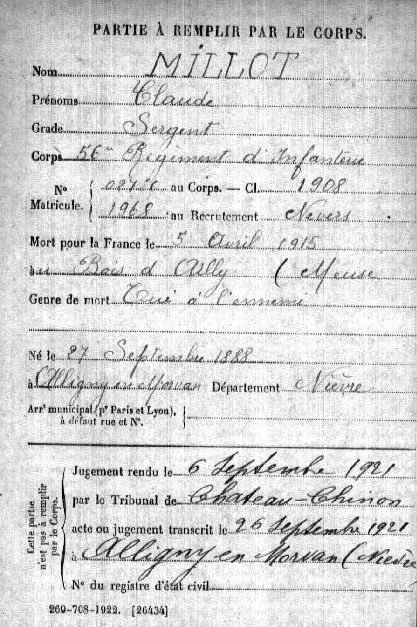 PARTIE À REMPLIR PAR LE CORPS.
Nom MILLOT
Prénoms Claude
Grade Sergent
Corps 56e Régiment d'Infanterie
N° Matricule. { au Corps. — Cl. 1908
1968 au Recrutement Nevers
Mort pour la France le 5 Avril 1915
au Bois d'Ailly (Meuse
Genre de mort Tué à l'ennemi
Né le 27 Septembre 1888
à Alligny en Morvan Département Nièvre
Arrt municipal (pr Paris et Lyon),
à défaut rue et N°.
Cette partie n'est pas à remplir par le Corps.
Jugement rendu le 6 Septembre 1921
par le Tribunal de Chateau-Chinon
acte ou jugement transcrit le 26 Septembre 1921
à Alligny en Morvan (Nièvre
N° du registre d'état civil
269-708-1922. [26434]